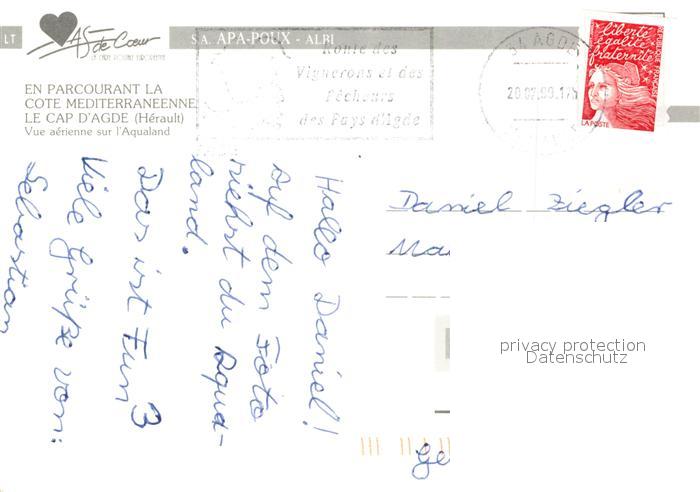 LT
AS de Cœur
S.A. APA-POUX - ALBI
EN PARCOURANT LA
COTE MEDITERRANEENNE
LE CAP D'AGDE (Hérault)
Vue aérienne sur l'Aqualand
Route des
Vignerons et des
Pêcheurs
des Pays d'Agde
34 AGDE
liberté
égalité
fraternité
RÉPUBLIQUE FRANÇAISE
LA POSTE
Hallo Daniel!
Auf dem Foto
siehst du Aqua-
land.
Das ist Fun 3
Viele Grüße von:
Sebastian
Daniel Ziegler
Ma
ge
privacy protection
Datenschutz